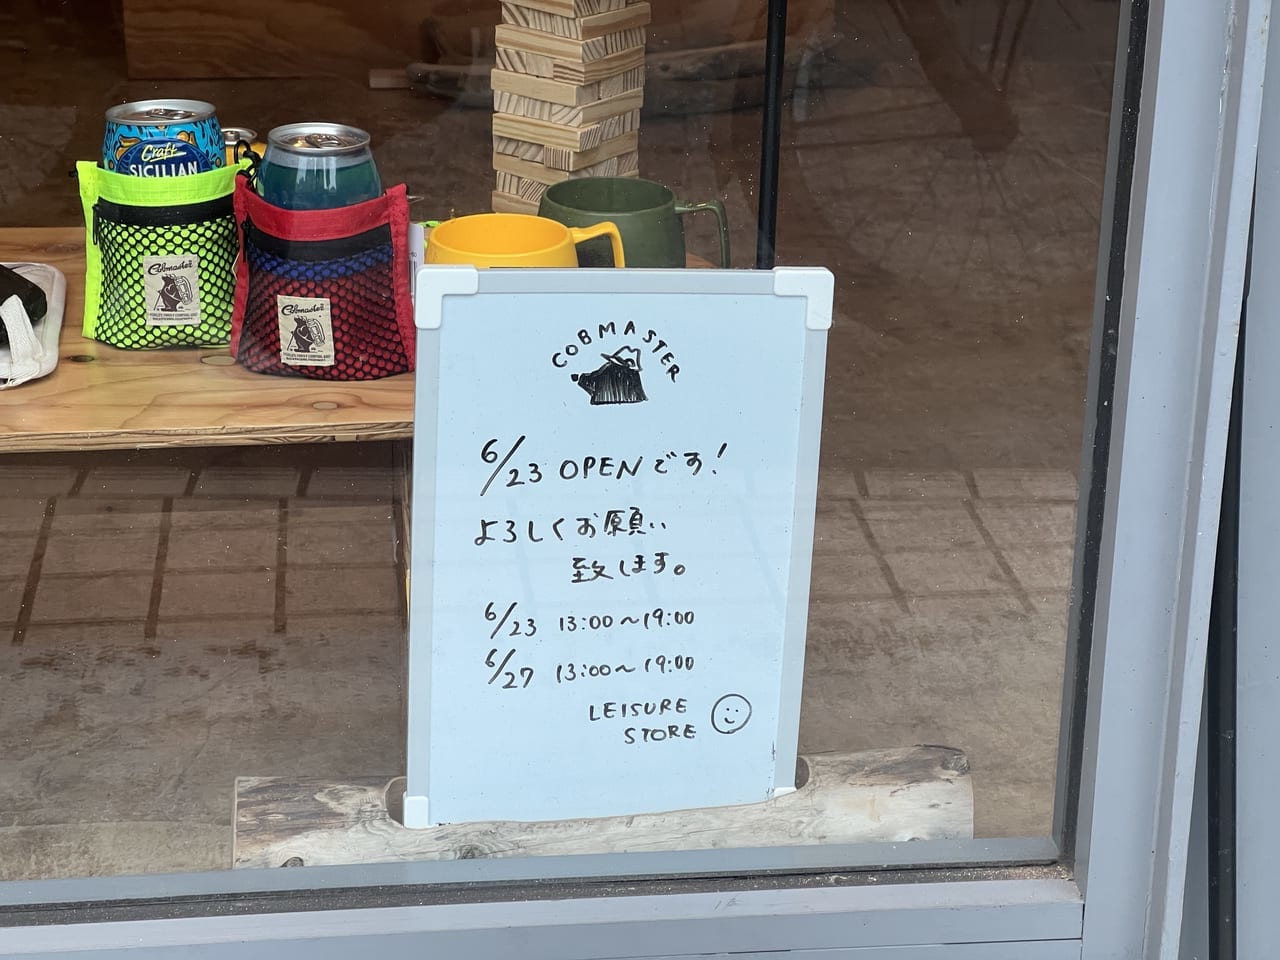 Craft
SICILIAN
Cobmaster
Cobmaster
COBMASTER
6/23 OPENです!
よろしくお願い
致します。
6/23 13:00~19:00
6/27 13:00~19:00
LEISURE
STORE